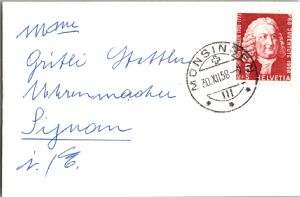 Mme
Gritli Stettler
Uhrenmacher
Signau
i. /E.
MÜNSINGEN
30.XII.58-
III
HELVETIA